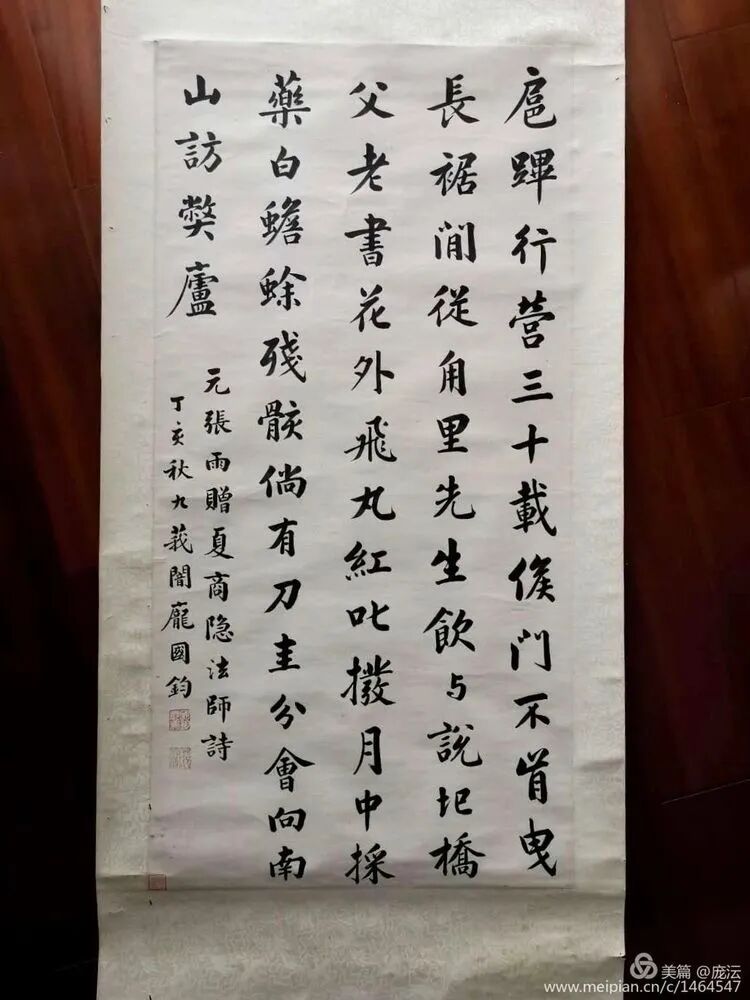 扈蹕行營三十載侯門不肯曳
長裾閒從甪里先生飲与說圯橋
父老書花外飛丸紅叱撥月中採
藥白蟾蜍殘骸倘有刀圭分會向南
山訪獘廬
元張雨贈夏商隐法師詩
丁亥秋九莪闇龐國鈞
美篇 @庞沄
www.meipian.cn/c/1464547